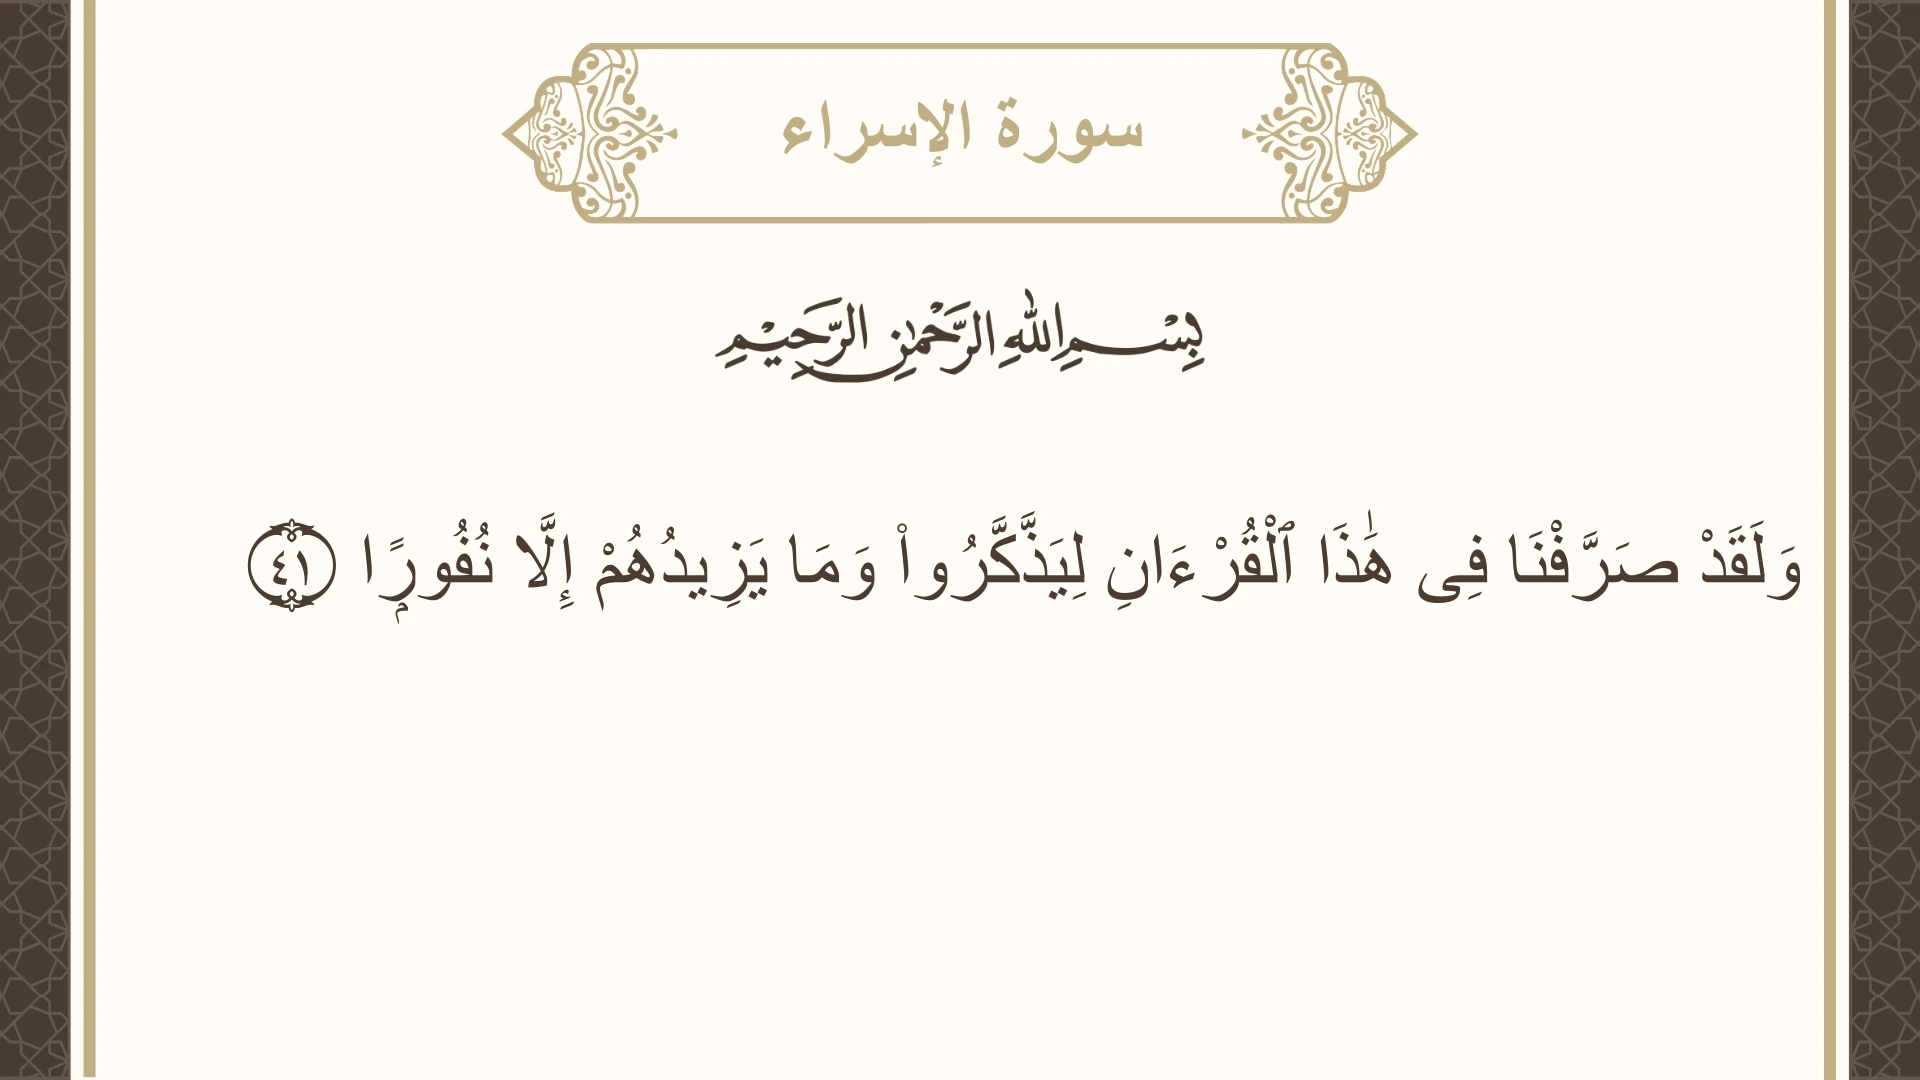 سورة الإسراء
بِسْمِ اللهِ الرَّحْمٰنِ الرَّحِيْمِ
وَلَقَدْ صَرَّفْنَا فِى هَٰذَا ٱلْقُرْءَانِ لِيَذَّكَّرُوا۟ وَمَا يَزِيدُهُمْ إِلَّا نُفُورًۭا ٤١